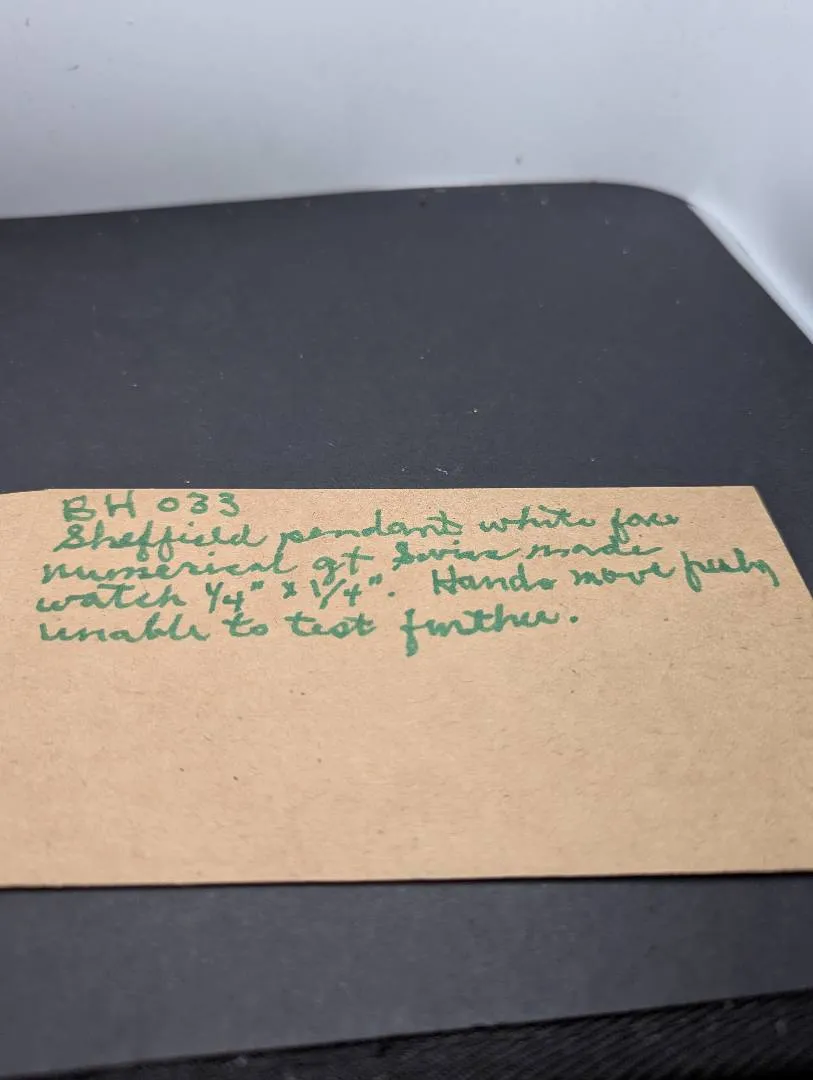 BH 033
Sheffield pendant white face
numerical gt Swiss made
watch 1/4" x 1/4". Hands move freely
unable to test further.